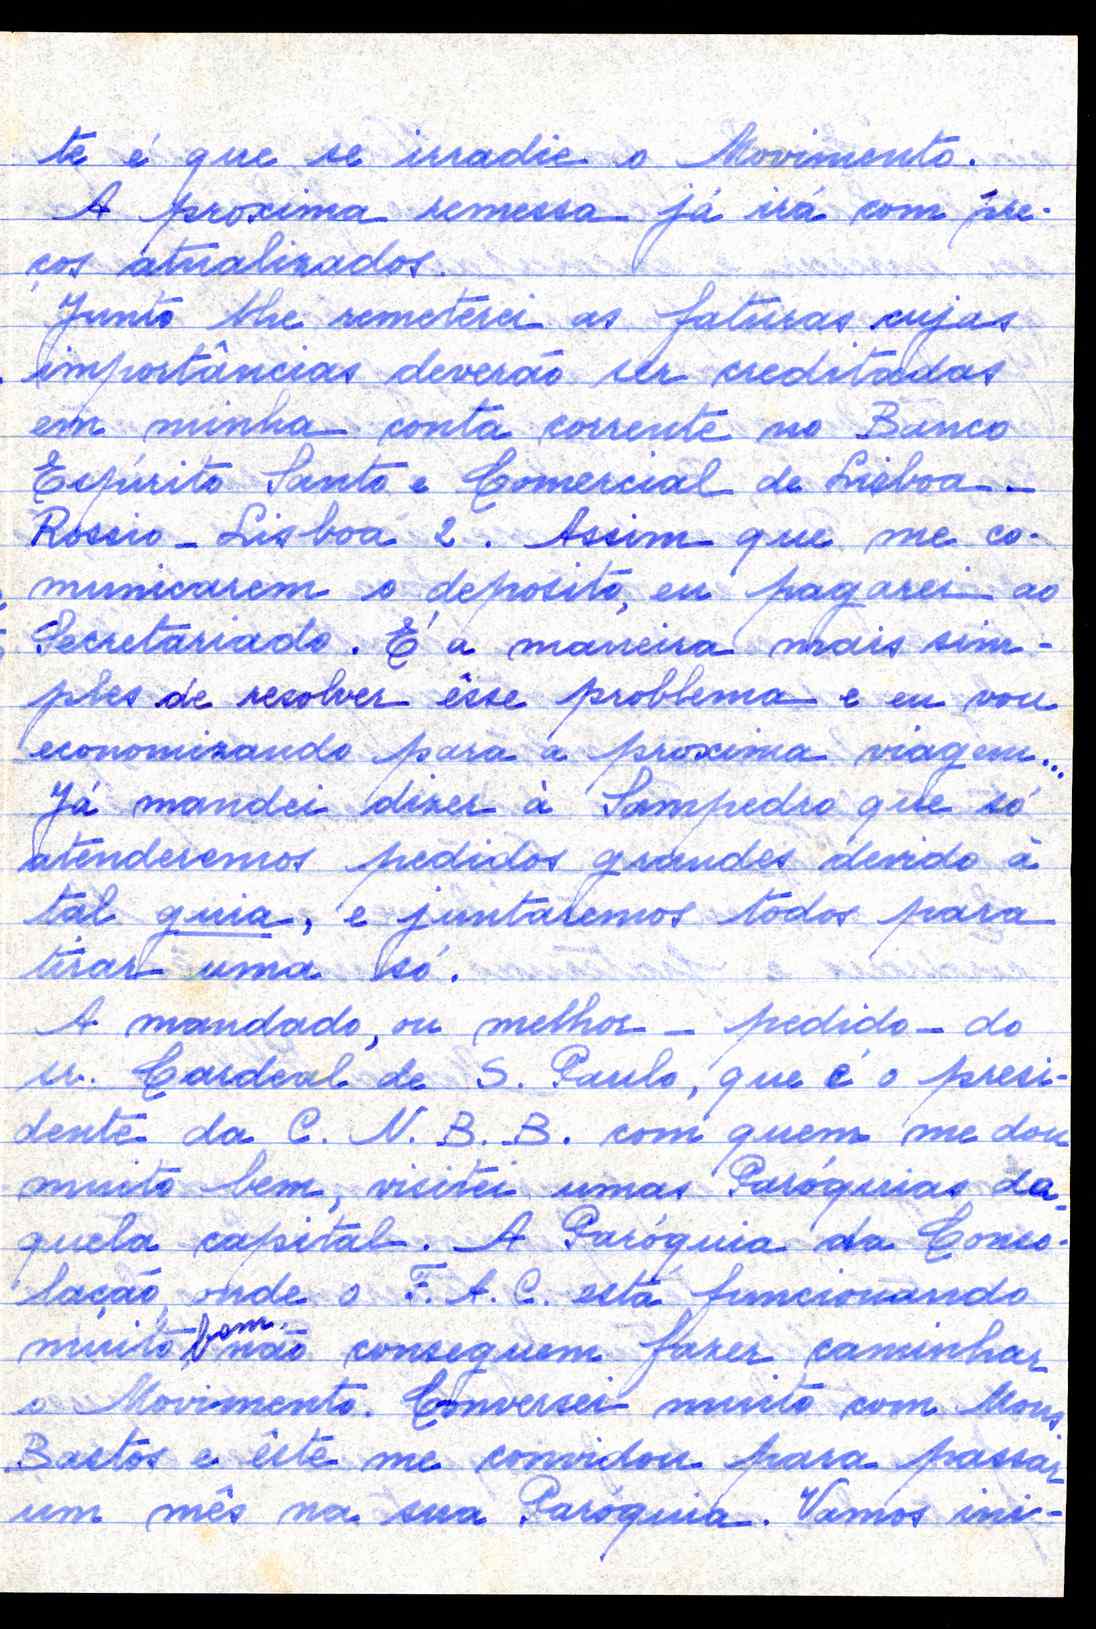 te é que se irradie o Movimento.
A proxima remessa já irá com pre-
ços atualizados.
Junto lhe remeterei as faturas cujas
importâncias deverão ser creditadas
em minha conta corrente no Banco
Espírito Santo e Comercial de Lisboa -
Rossio - Lisboa 2. Assim que me co-
municarem o deposito, eu pagarei ao
Secretariado. É a maneira mais sim-
ples de resolver êsse problema e eu vou
economizando para a proxima viagem...
Já mandei dizer à Sampedro que só
atenderemos pedidos grandes devido à
tal guia, e juntaremos todos para
tirar uma só.
A mandado, ou melhor - pedido - do
sr. Cardeal de S. Paulo, que é o presi-
dente da C. N. B. B. com quem me dou
muito bem, visitei umas Paróquias da-
quela capital. A Paróquia da Conso-
lação, onde o F. A. C. está funcionando
muito bem não conseguem fazer caminhar
o Movimento. Conversei muito com Mons
Bastos e êste me convidou para passar
um mês na sua Paróquia. Vamos ini-